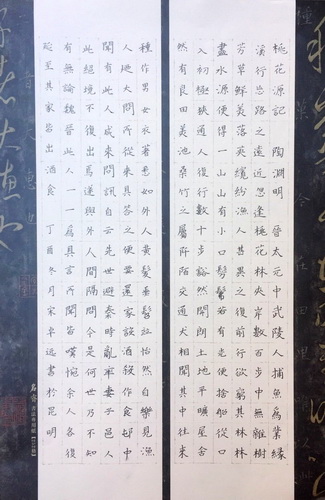 桃花源記 陶淵明 晉太元中武陵人捕魚為業緣
溪行忘路之遠近忽逢桃花林夾岸數百步中無雜樹
芳草鮮美落英繽紛漁人甚異之復前行欲窮其林林
盡水源便得一山山有小口髣髴若有光便捨船從口
入初極狹通人復行數十步豁然開朗土地平曠屋舍
然有良田美池桑竹之屬阡陌交通犬相聞其中往來
種作男女衣著悉如外人黃髮垂髫竝怡然自樂見漁
人大問所從來具答之便要還家時設酒殺作食邨中
聞有此人咸來問訊自云先世避秦時亂率妻子邑人
此絕境不復出焉遂與外人間隔問今是何世乃不知
有無論魏晉此人一一為具言所聞皆嘆惋餘人各復
延至其家皆出酒食 丁酉冬月宋卓遠書於昆明
書法專用紙